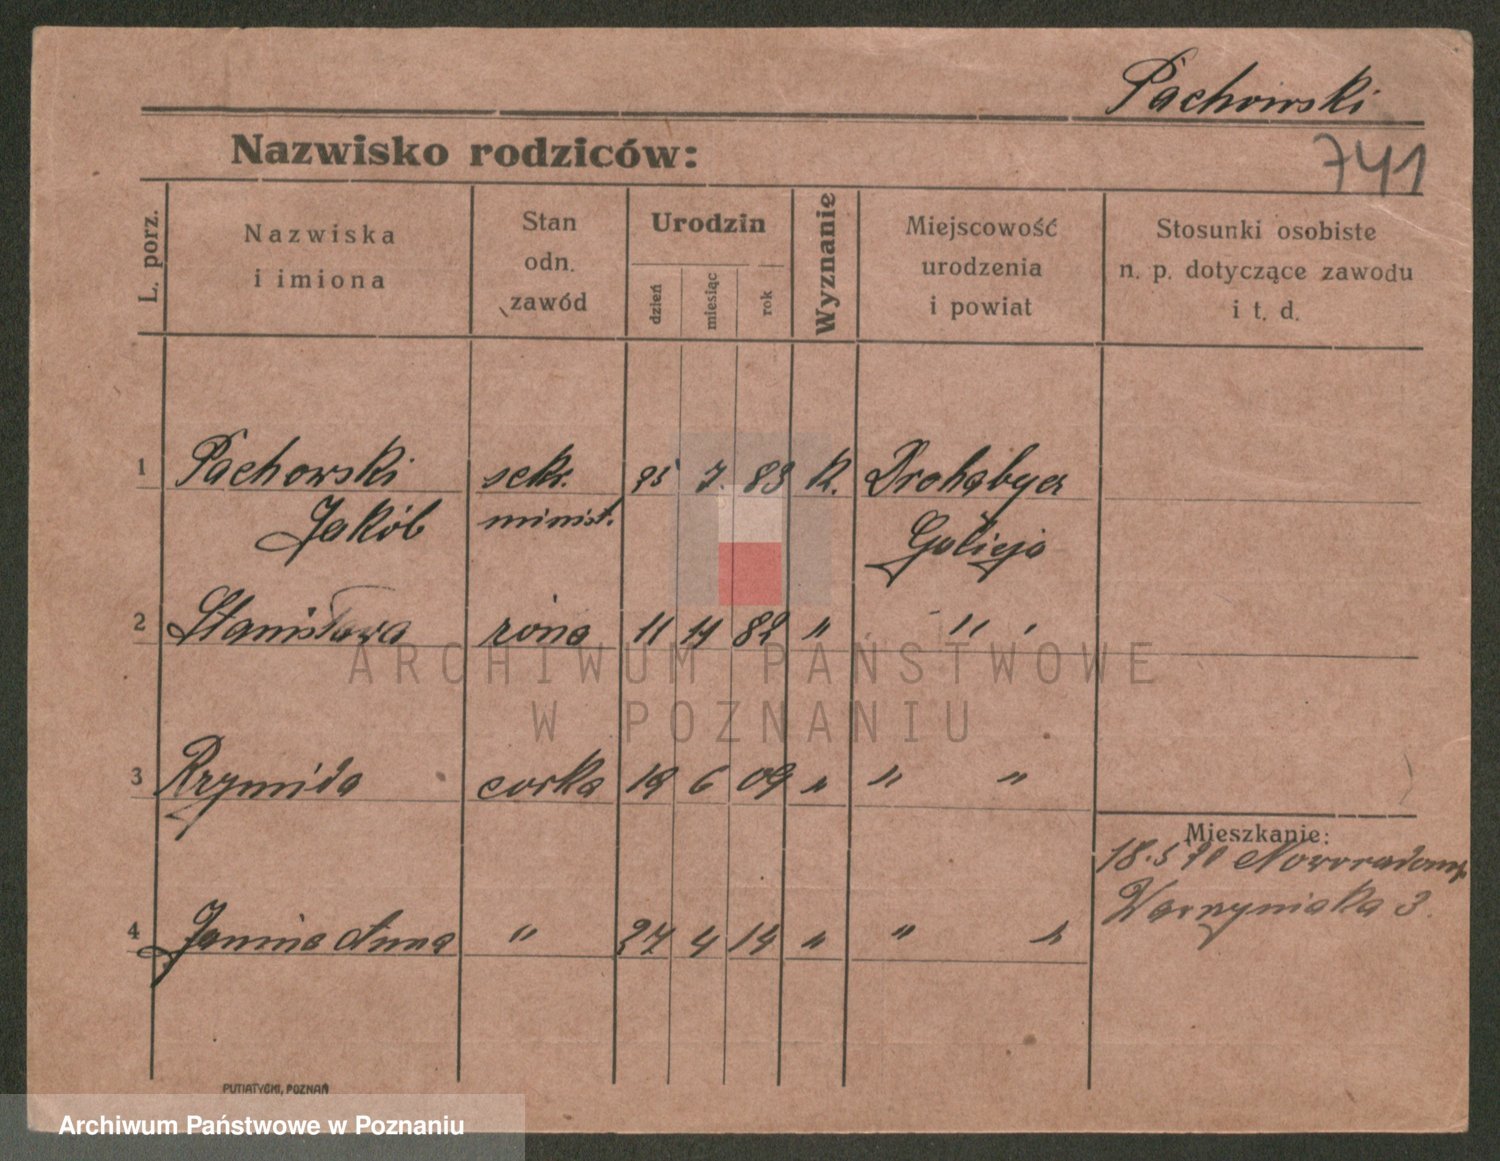 Pachowski
741
Nazwisko rodziców:
L. porz.
Nazwiska
i imiona
Stan
odn.
zawód
Urodzin
dzień
miesiąc
rok
Wyznanie
Miejscowość
urodzenia
i powiat
Stosunki osobiste
n. p. dotyczące zawodu
i t. d.
1 Pachowski sekr. 25 7. 83 K.
Jakób minist. Galicja
2 Stanisława żona 11 11 82 " " "
3 córka 19 6 09 " " "
Mieszkanie:
18.5
3.
4 Janina Anna " 27 4 14 " " "
PUTIATYCKI, POZNAŃ
ARCHIWUM PAŃSTWOWE
W POZNANIU
Archiwum Państwowe w Poznaniu